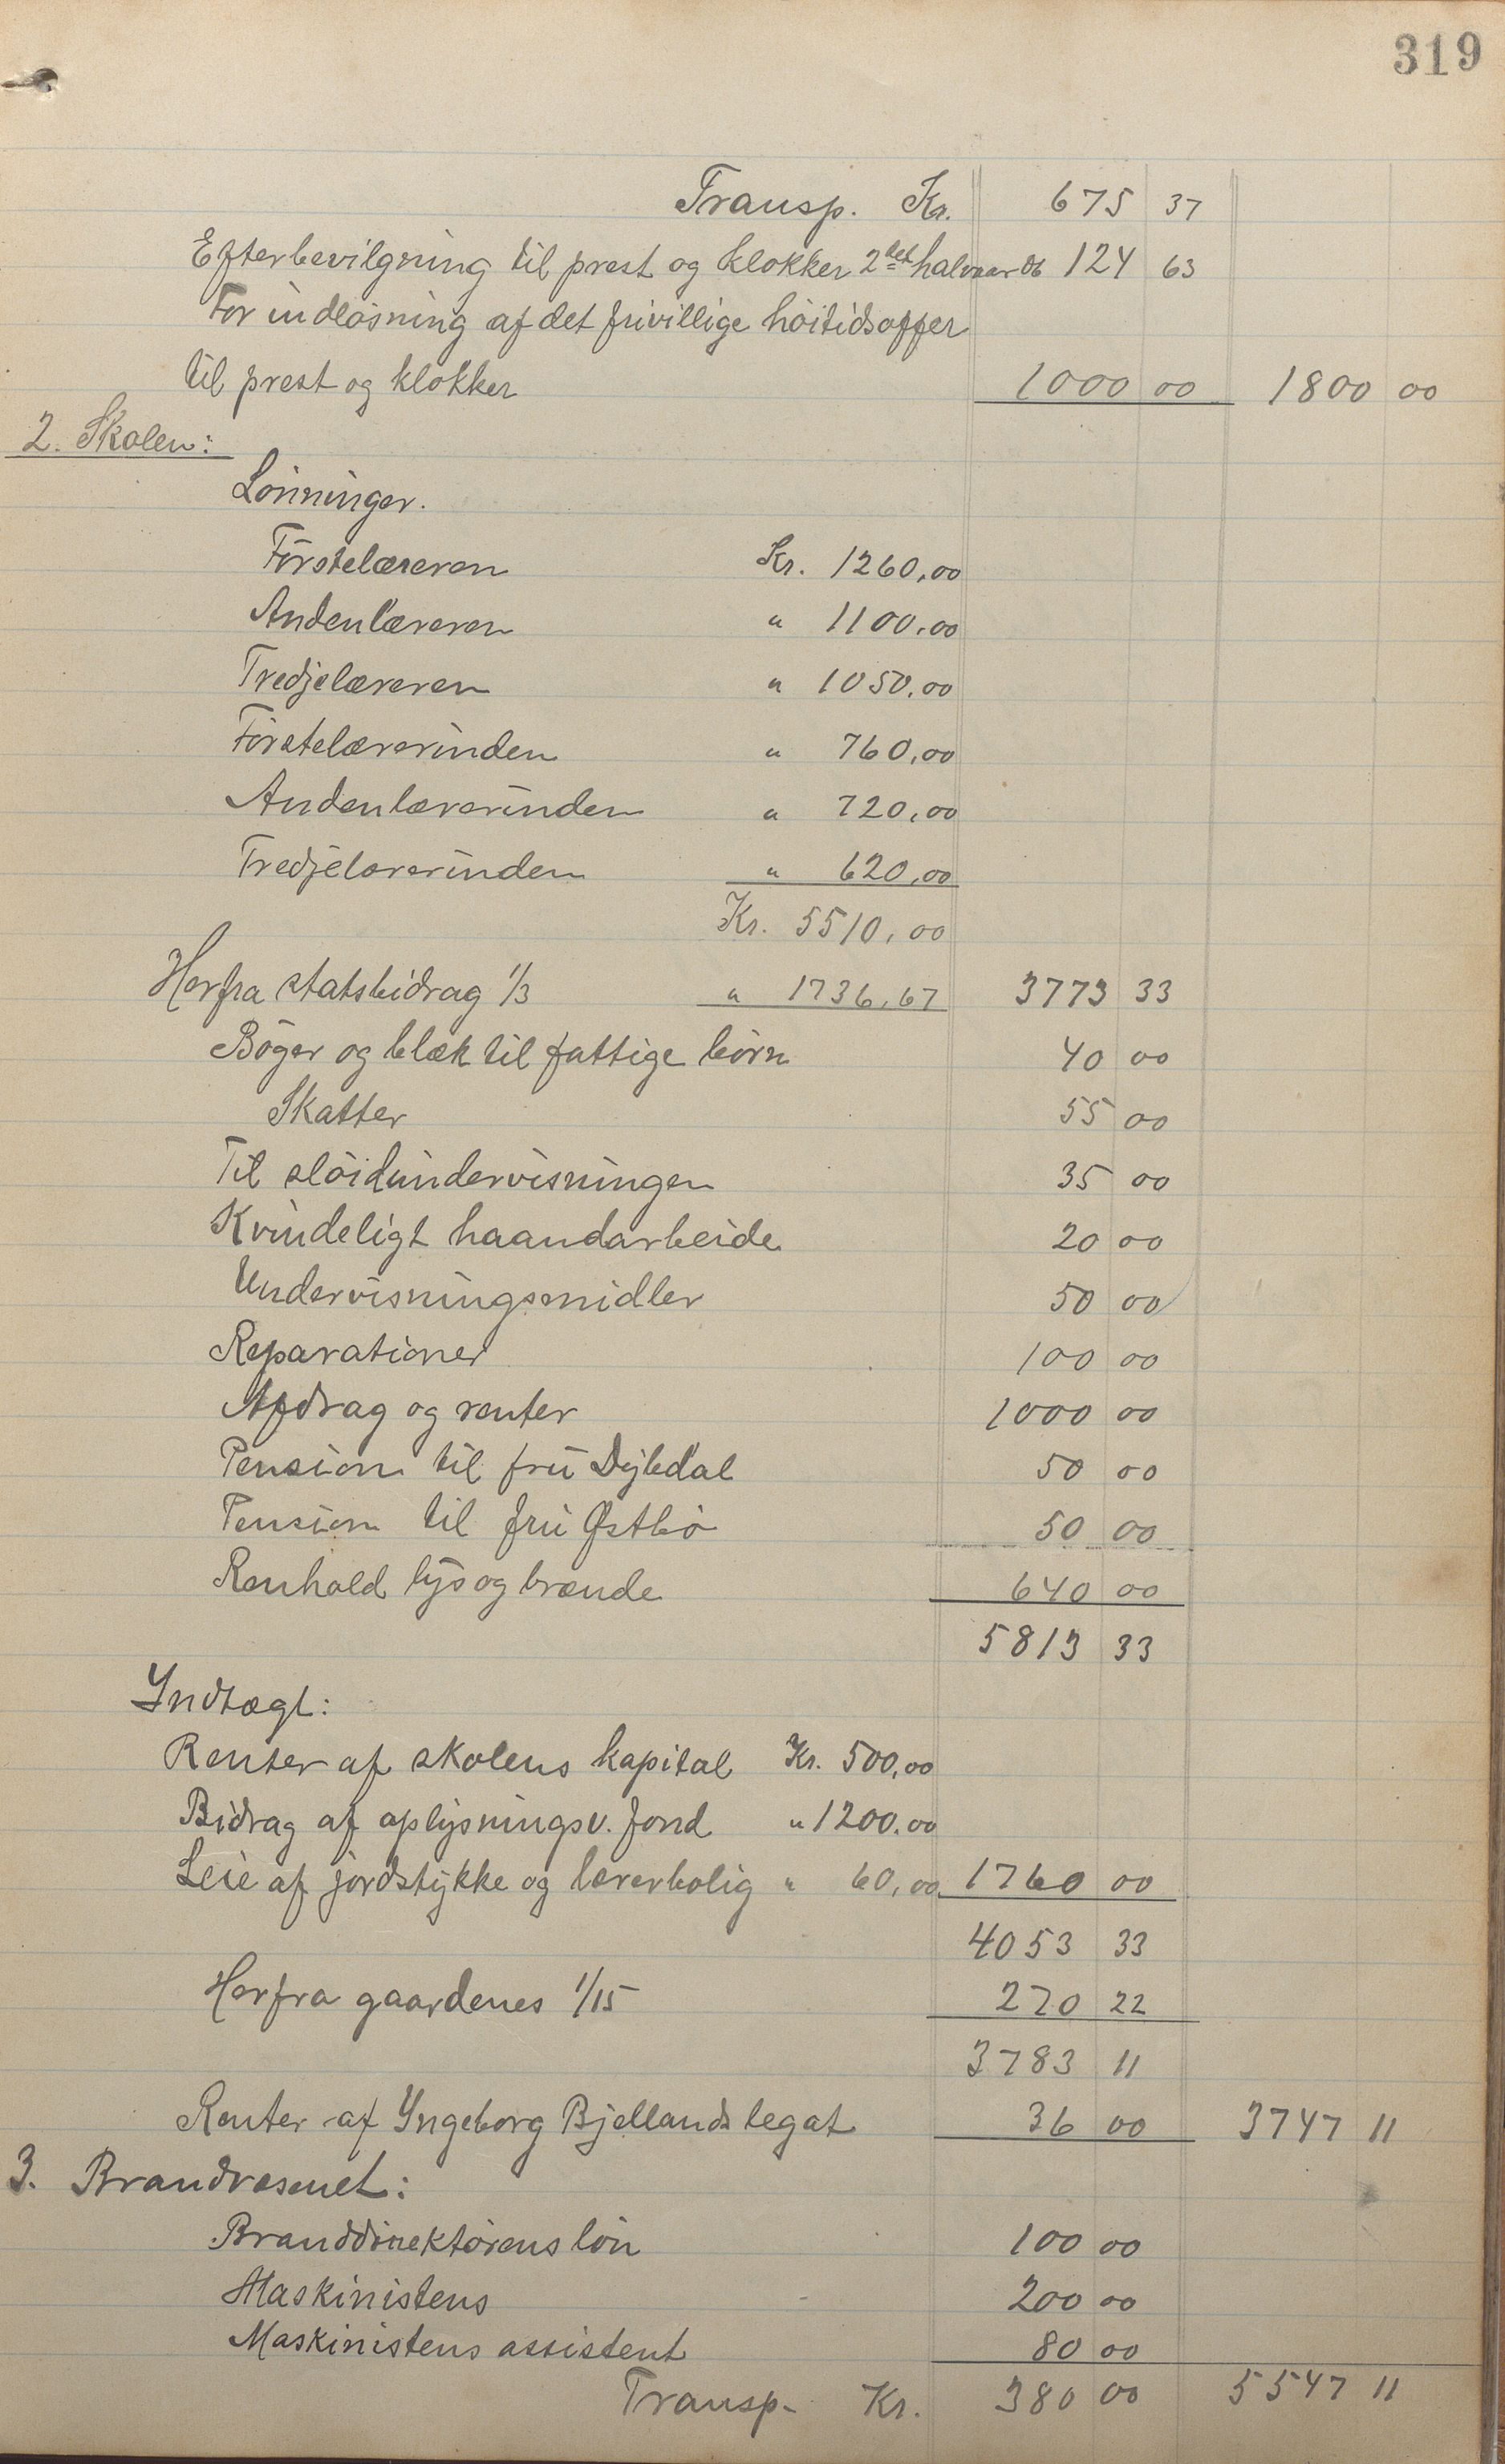 319
Transp. Kr. 675 37
Efterbevilgning til prest og klokker 2det halvaar 06 124 63
For indløsning af det frivillige høitidsoffer
til prest og klokker 1000 00 1800 00
2. Skolen:
Lønninger.
Førstelæreren Kr. 1260,00
Andenlæreren " 1100,00
Tredjelæreren " 1050,00
Førstelærerinden " 760,00
Andenlærerinden " 720,00
Tredjelærerinden " 620,00
Kr. 5510,00
Herfra statsbidrag 1/3 " 1736,67 3773 33
Bøger og blæk til fattige børn 40 00
Skatter 55 00
Til sløidundervisningen 35 00
Kvindeligt haandarbeide 20 00
Undervisningsmidler 50 00
Reparationer 100 00
Afdrag og renter 1000 00
Pension til fru Dybdal 50 00
Pension til fru Østbø 50 00
Renhold lys og brænde 640 00
5813 33
Indtægt:
Renter af skolens kapital Kr. 500,00
Bidrag af oplysningsv. fond " 1200.00
Leie af jordstykke og lærerbolig " 60,00 1760 00
4053 33
Herfra gaardenes 1/15 270 22
3783 11
Renter af Yngeborg Bjellands legat 36 00 3747 11
3. Brandvæsenet:
Branddirektørens løn 100 00
Maskinistens 200 00
Maskinistens assistent 80 00
Transp. Kr. 380 00 5547 11